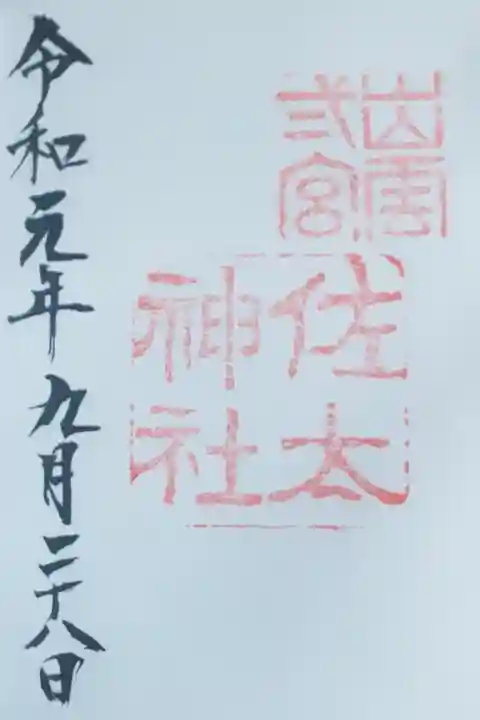 出雲
弍宮
佐太
神社
令和元年九月二十八日